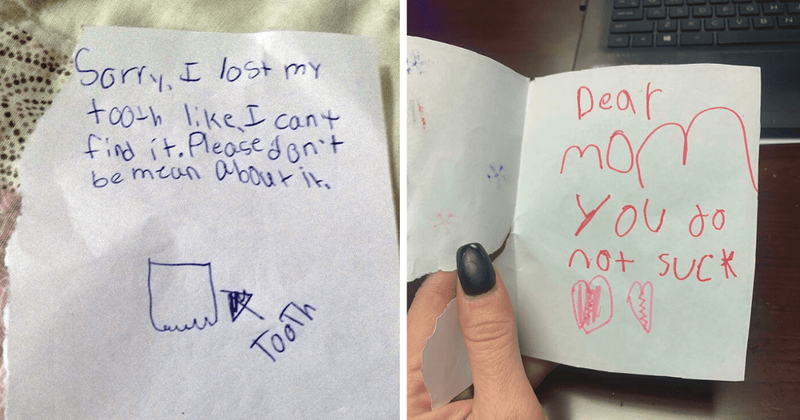 Sorry, I lost my
tooth like, I can't
find it. Please don't
be mean about it.
TOOTH
Dear
mom
you do
not suck